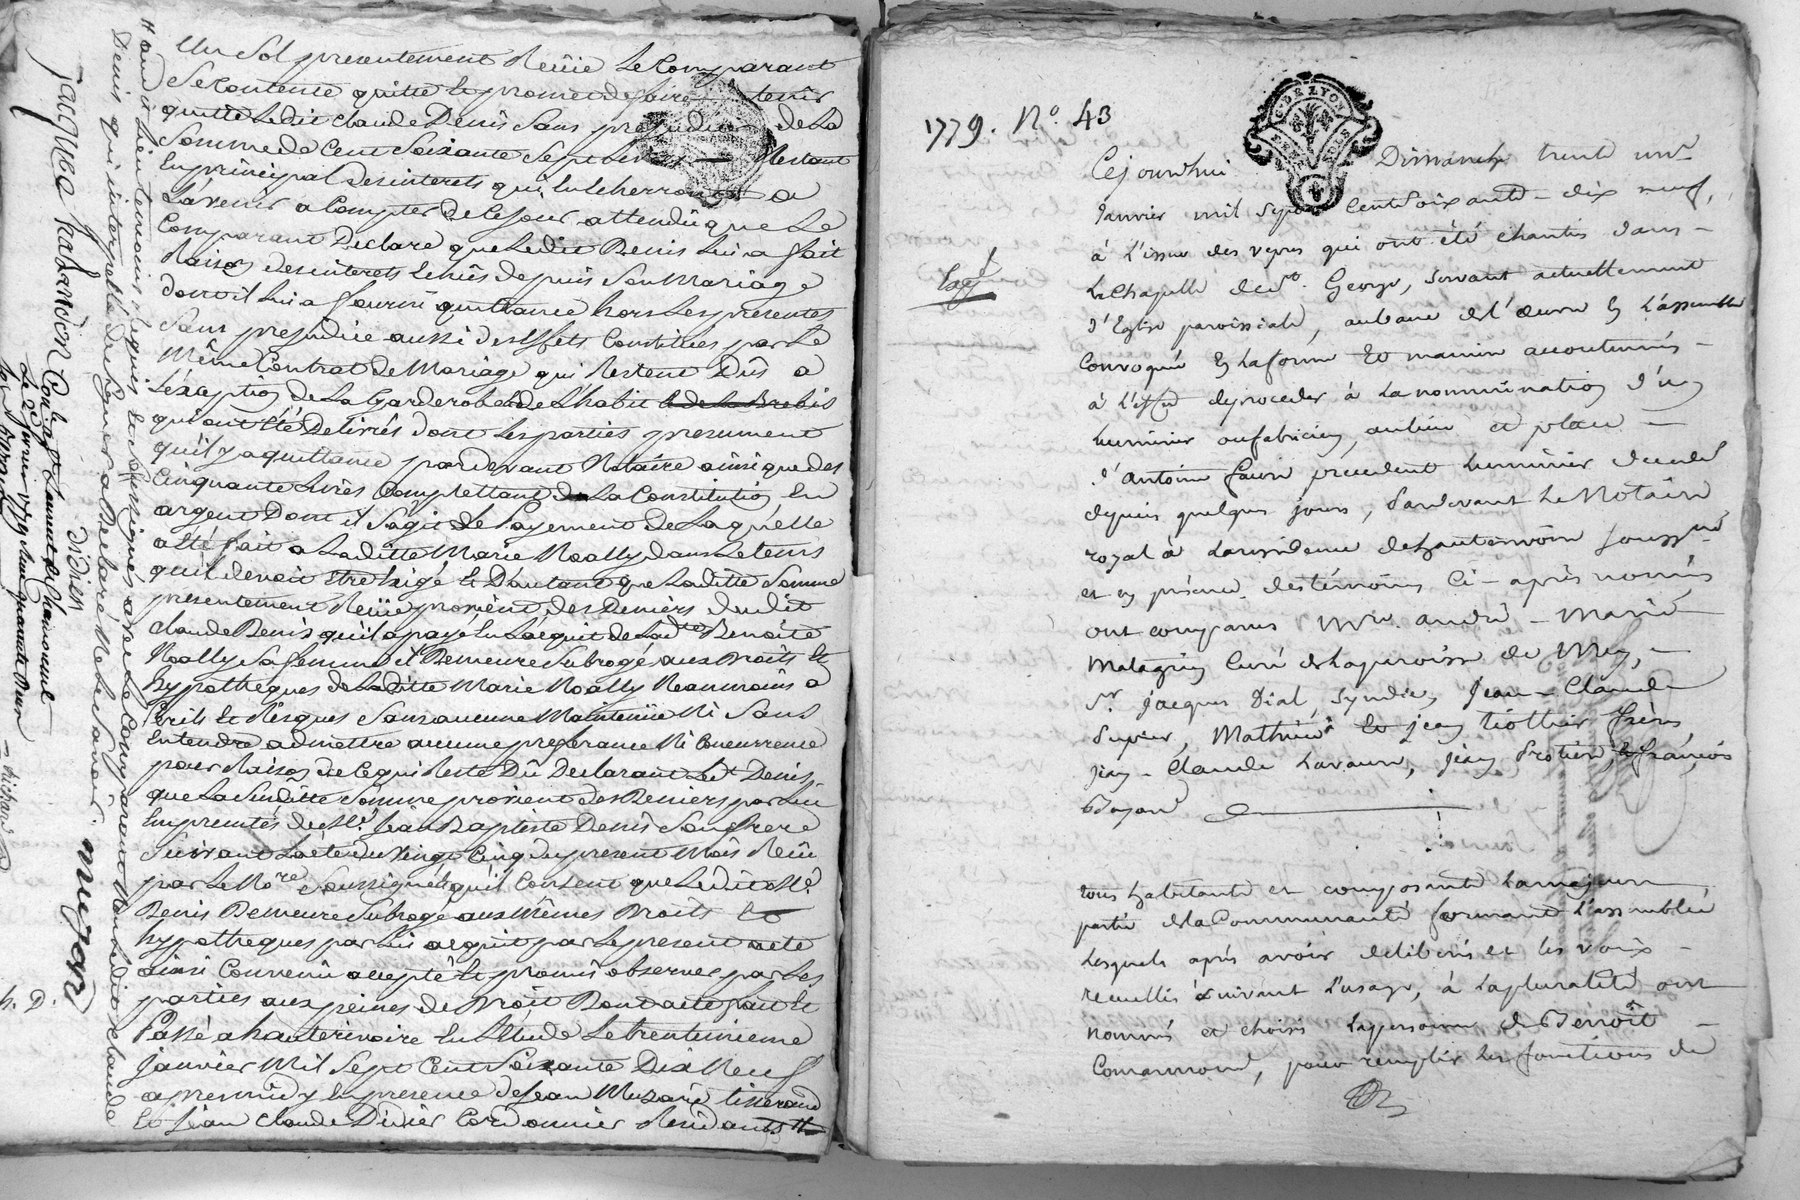 Un Sol presentement Reüe Le Comparant
Se Contente quitte et promet de faire tenir
quitte Ledit Claude Denis Sans prejudice de La
Somme de Cent Soixante Sept Livres Restant
En principal des interets qui en
L'avenir a Compter de Ce jour attendû que Le
Comparant Declare que Ledit Denis Lui a fait
Raison des interets depuis Son Mariage
dont il Lui a fourni quittance hors Les presentes
Sans prejudice aussi des Effets Constitués par Le
Même Contrat de Mariage qui Restent Dûs a
L'exception de La Garderobe et de L'habit et de La Brebis
qui ont Eté Delivrés dont Les parties presument
qu'il y a quittance pardevant Notaire ainsi que des
Cinquante Livres Complettant de La Constitution En
argent Dont il S'agit Le Payement de Laquelle
a Eté fait a Laditte Marie Noally dans Le tems
qu'il devoit être Exigé Et D'autant que Laditte Somme
presentement Reüe provient des Deniers dudit
Claude Denis qu'il a payé En L'acquit de Lad.te Benoite
Noally Sa femme il Demeure Subrogé aux Droits Et
hypotheques de Laditte Marie Noally Neanmoins a
Perils Et Risques Sans aucune Maintenüe Ni Sans
Entendre admettre aucune preferance Ni Concurrence
pour Raison de Ce qui Reste Dû Declarant Led.t Denis,
que La Susditte Somme provient des Deniers par Lui
Empruntés de S.r Jean Baptiste Denis Son frere
Suivant L'acte du Vingt Cinq du present Mois Reçu
par Le No.re Soussigné Et qu'il Consent que Ledit S.r
Denis Demeure Subrogé aux Mêmes Droits Et
hypotheques par Lui acquis par Le present acte
ainsi Convenu accepté Et promis observer par Les
parties aux peines de Droit Dont acte fait Et
Passé a hauterivoire En L'Etude Le trentunieme
janvier Mil Sept Cent Soixante Dix Neuf
apres midy En presence de Jean Muzard tisserand
Et Jean Claude Didier Cordonnier Residants #
# audit Lieu temoins Requis Et Soussignés avec Le Comparant Non Ledit Claude
Denis qui interpellé de Signer a Declaré Ne Le Savoir.
megan
jacque halandon
didien
Con.lé a S.t Laurent de Chamousset
Le 2 fevrier 1779 Reçu quarante Deux
1779. N.o 43
Cejourdhui Dimanche trente un.e
Janvier mil sept Cent Soixante - dix neuf,
à l'issue des vepres qui ont été chantés dans -
La Chapelle de S.t George, servant actuellement
d'Eglise paroissiale, au banc de l'oeuvre En L'assemblée
Convoquée En La forme Et maniere accoutumés -
à L'effet de proceder à La nommination d'un
Luminier ou fabricien, au lieu et place -
d'antoine faure precedent Luminier decedé
depuis quelques jours, Pardevant Le Notaire
royal à La residence de hauterivoire soussigné
et en présence des témoins Ci - après nommés
ont comparus M.re andré - Marie
Malaguin Curé de La paroisse de Meys, -
S.r Jacques Dial, syndic, Jean - Claude
Dupier, Mathieu Et jean tiollier frères
jean - Claude Lavaure, jean Protier, Et françois
Boyard
tous habitants et composants La majeure
partie de La Communauté formant L'assemblée
Lesquels après avoir délibéré et les voix -
recueillis suivant L'usage, à La pluralité ont
nommés et choisis La personne de Benoît -
Comarmond, pour remplir Les fonctions de